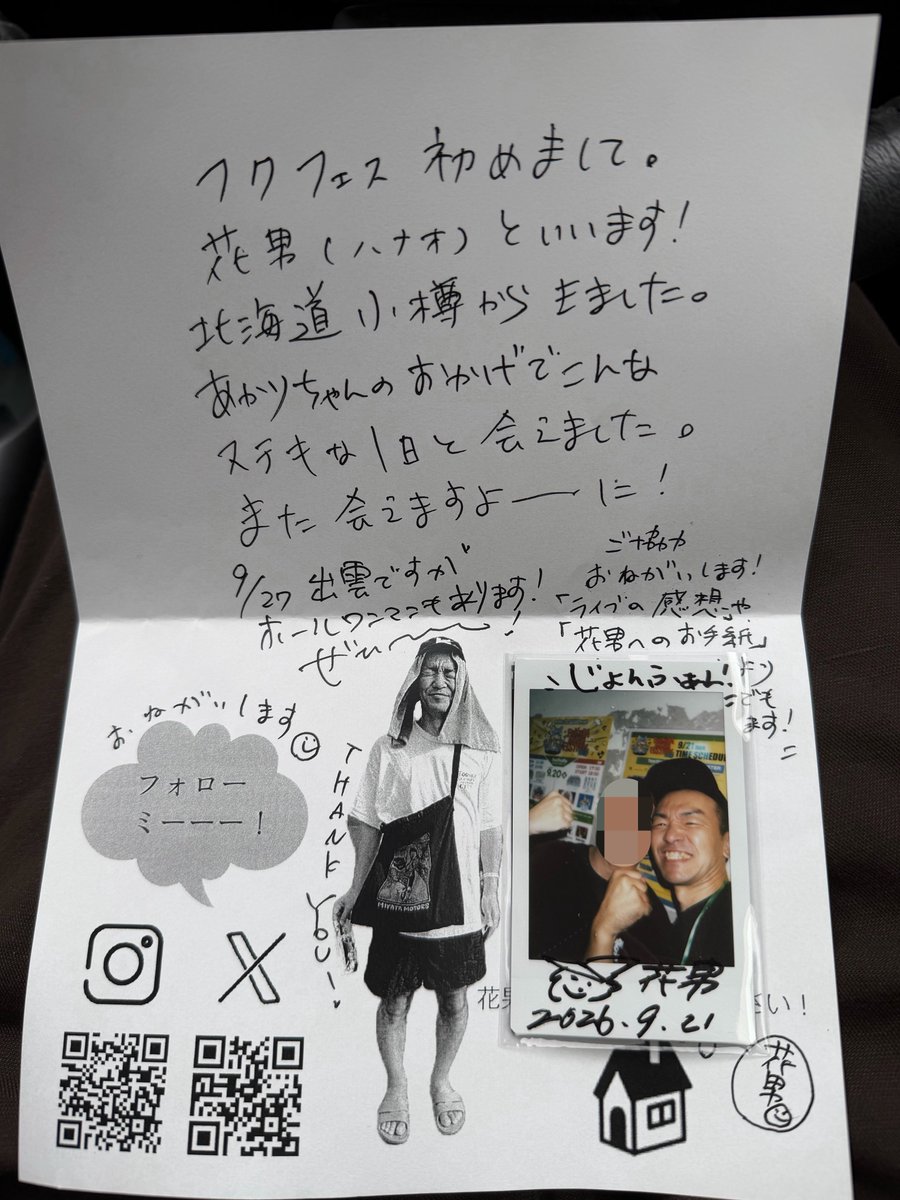 フクフェス 初めまして。
花男(ハナオ)といいます!
北海道小樽からきました。
あかりちゃんのおかげでこんな
ステキな1日と会えました。
また会えますよーーーに!
9/27 出雲ですが
ホールワンマンもあります!
ぜひ〜〜〜!
ご協力
おねがいします!
「ライブの感想」や
「花男へのお手紙」
より
こじょんうぉん!
でも
ます!
おねがいします
フォロー
ミーーー!
THANK YOU!
MIYATA MOTORS
9/20
9/21
TIME SCHEDULE
花男
2026.9.21
花男
さい!
花男